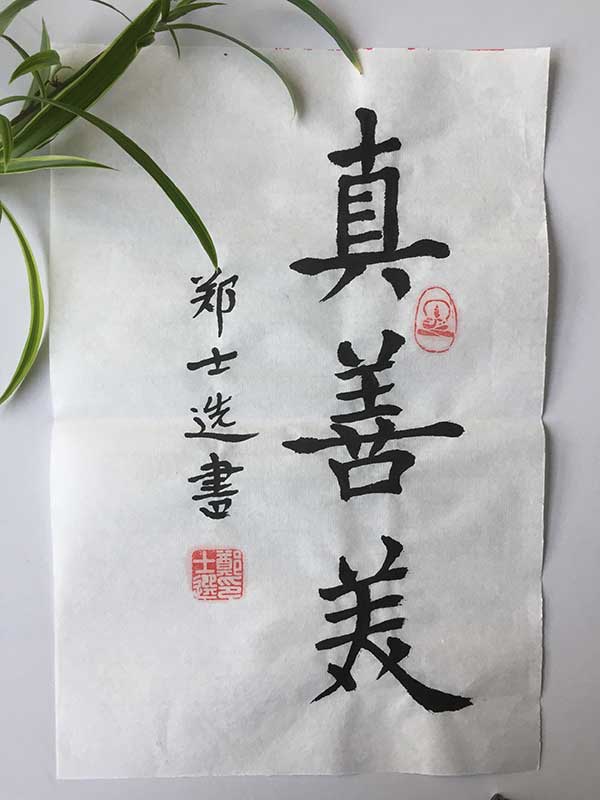 真善美
郑士选書
鄭印士選